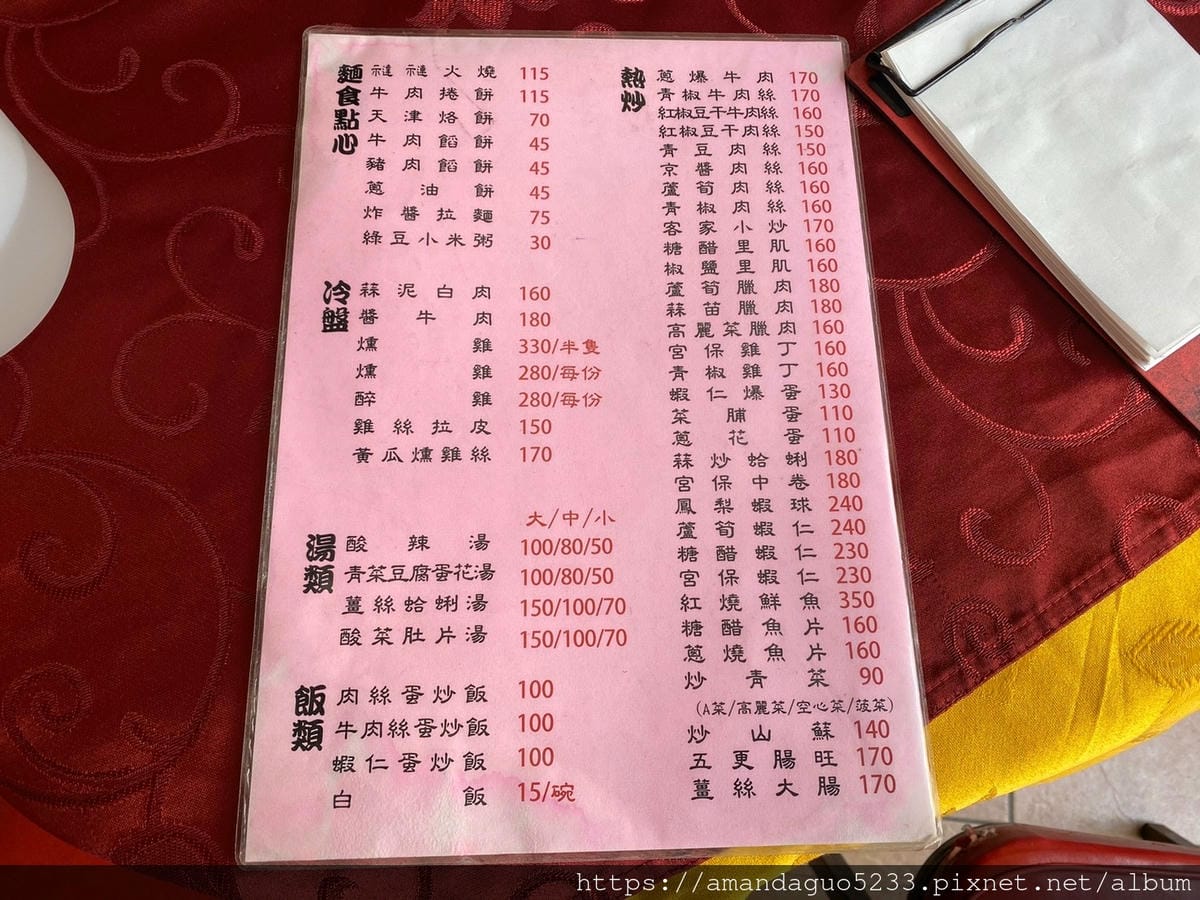 麵食點心
褳褳火燒 115
牛肉捲餅 115
天津烙餅 70
牛肉餡餅 45
豬肉餡餅 45
蔥油餅 45
炸醬拉麵 75
綠豆小米粥 30
冷盤
蒜泥白肉 160
醬牛肉 180
燻雞 330/半隻
燻雞 280/每份
醉雞 280/每份
雞絲拉皮 150
黃瓜燻雞絲 170
大/中/小
湯類
酸辣湯 100/80/50
青菜豆腐蛋花湯 100/80/50
薑絲蛤蜊湯 150/100/70
酸菜肚片湯 150/100/70
飯類
肉絲蛋炒飯 100
牛肉絲蛋炒飯 100
蝦仁蛋炒飯 100
白飯 15/碗
熱炒
蔥爆牛肉 170
青椒牛肉絲 170
紅椒豆干牛肉絲 160
紅椒豆干肉絲 150
青豆肉絲 150
京醬肉絲 160
蘆筍肉絲 160
青椒肉絲 160
客家小炒 170
糖醋里肌 160
椒鹽里肌 160
蘆筍臘肉 180
蒜苗臘肉 180
高麗菜臘肉 160
宮保雞丁 160
青椒雞丁 160
蝦仁爆蛋 130
菜脯蛋 110
蔥花蛋 110
蒜炒蛤蜊 180
宮保中卷 180
鳳梨蝦球 240
蘆筍蝦仁 240
糖醋蝦仁 230
宮保蝦仁 230
紅燒鮮魚 350
糖醋魚片 160
蔥燒魚片 160
炒青菜 90
(A菜/高麗菜/空心菜/菠菜)
炒山蘇 140
五更腸旺 170
薑絲大腸 170
https://amandaguo5233.pixnet.net/album